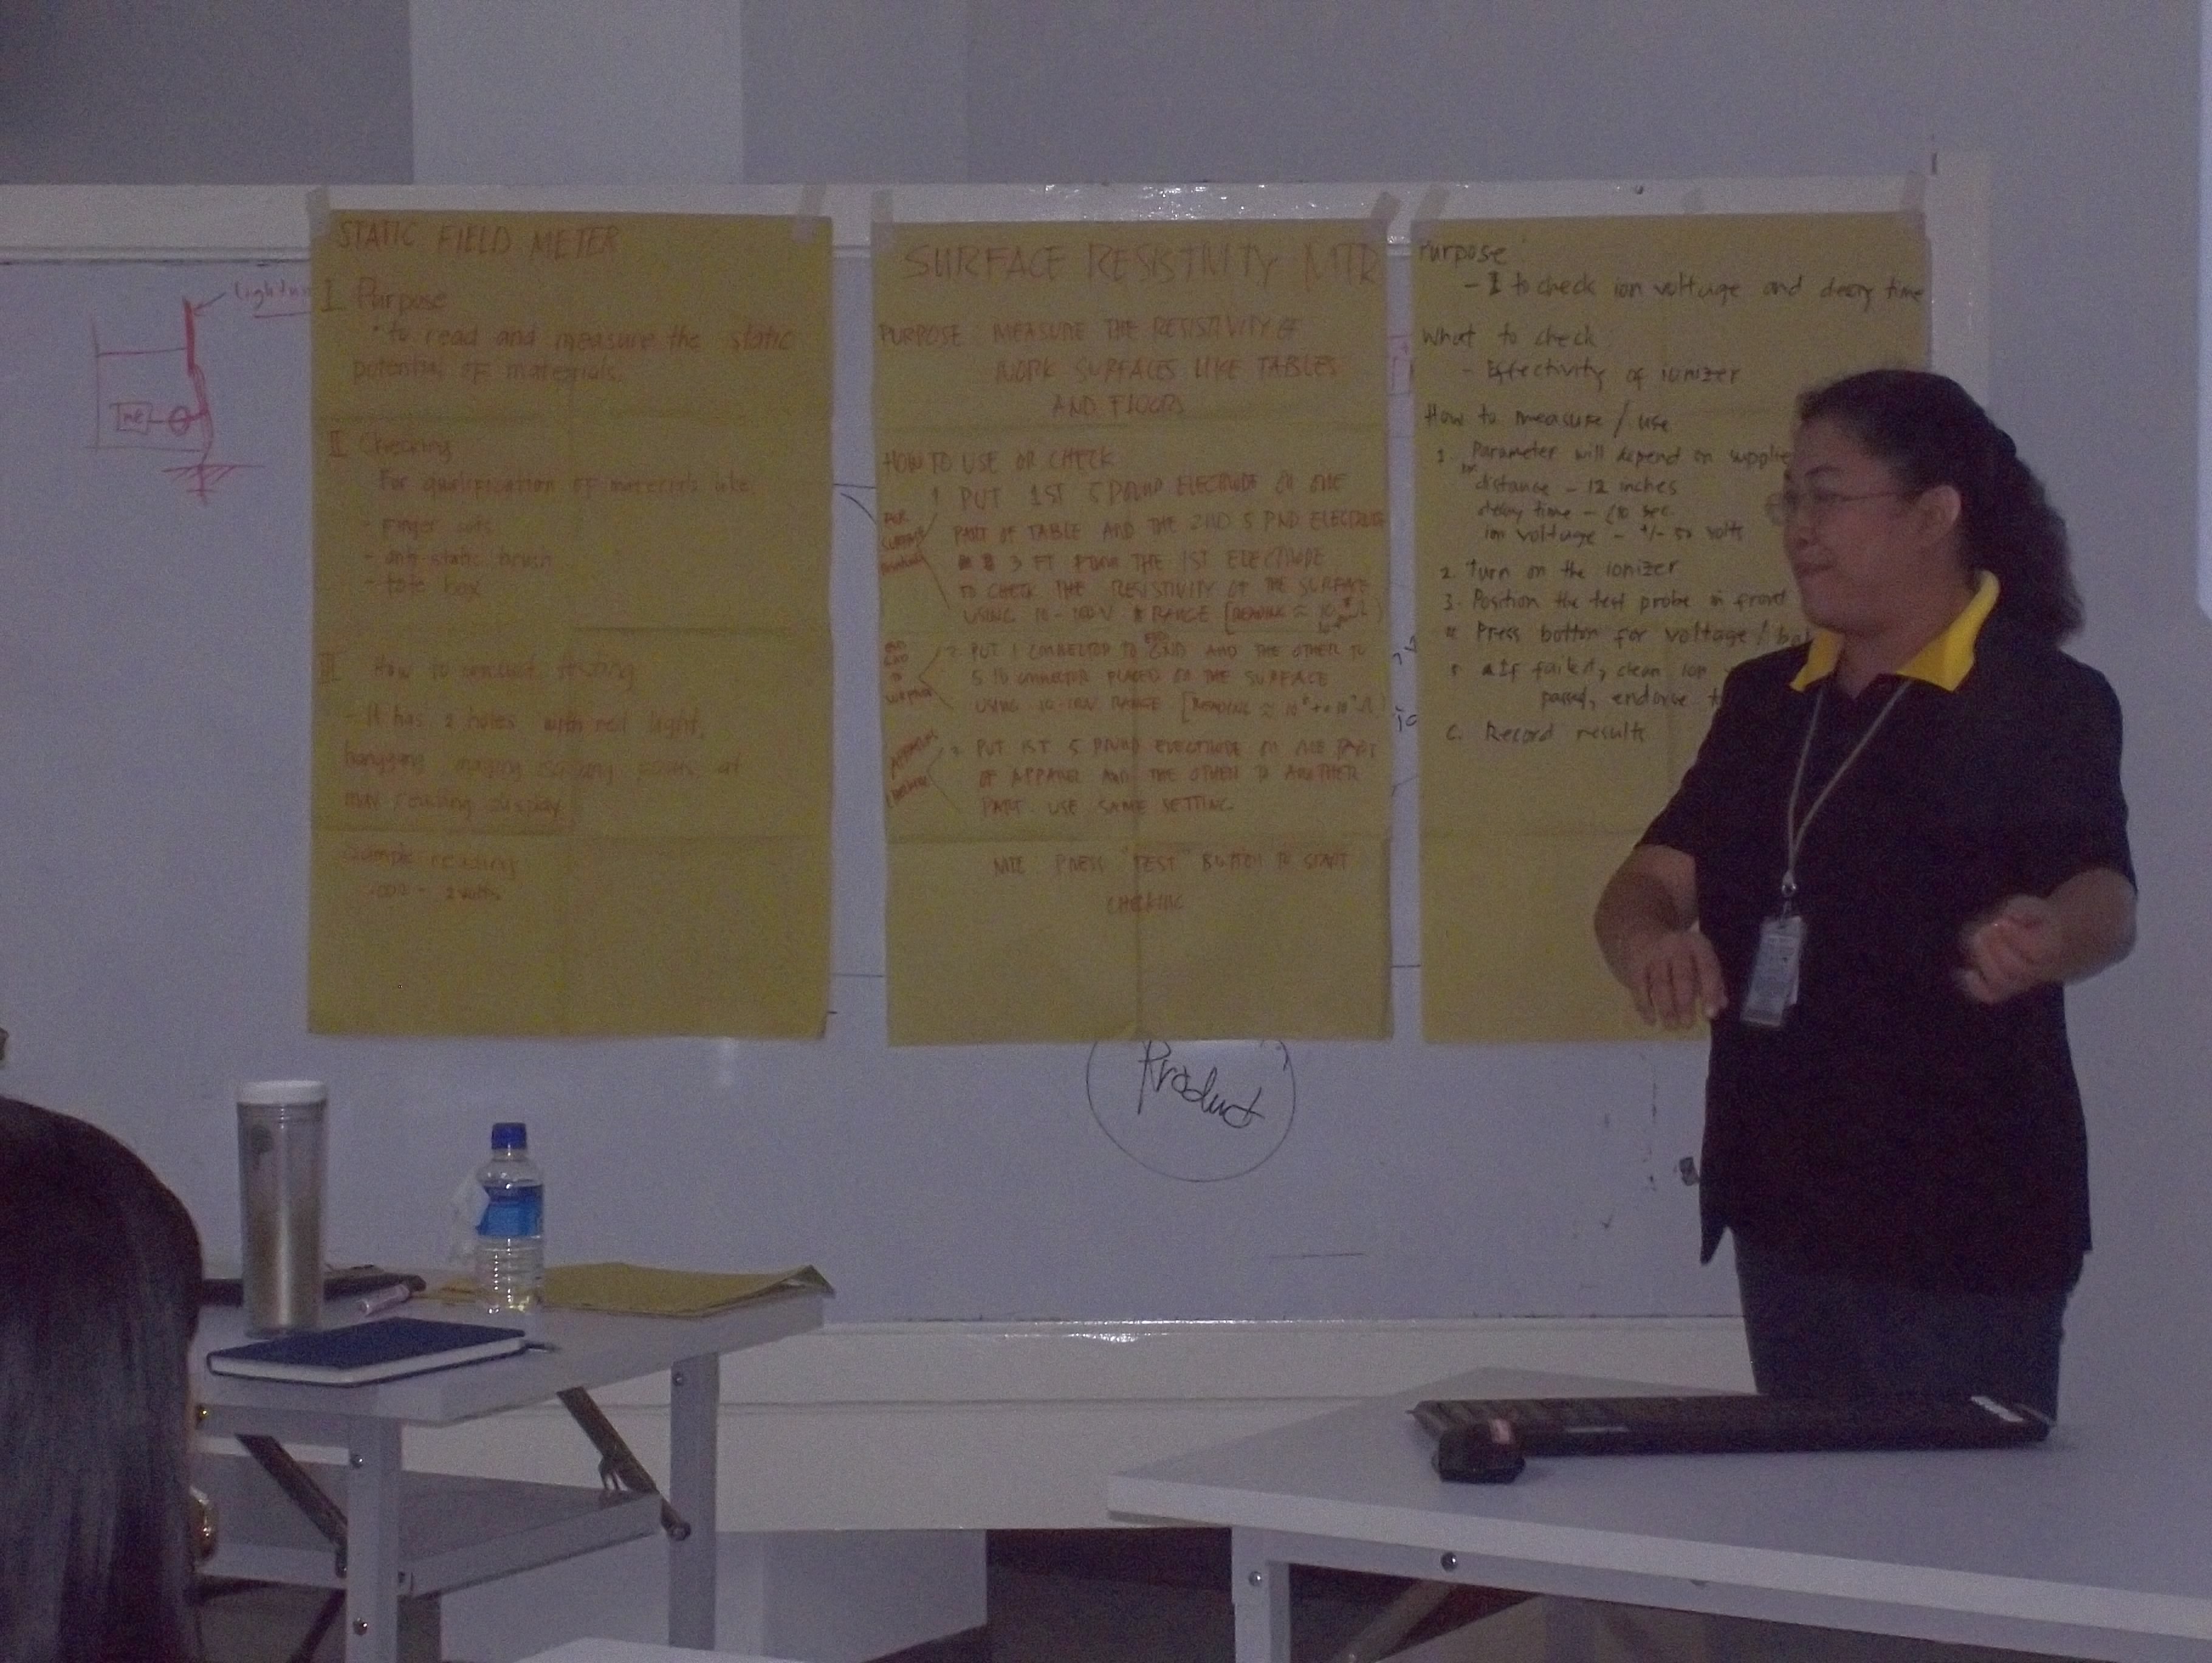 Lightni
me
STATIC FIELD METER
I. Purpose
"to read and measure the static
potential OF materials.
II Checking
For qualification OF materials like
- Finger cots
- anti static brush
- tote box
III How to conduct testing
- It has 2 holes with red light,
hanggang maging isa ang at
may reading display
Sample reading
.002 - .2 volts
SURFACE RESISTIVITY MTR
PURPOSE: MEASURE THE RESISTIVITY OF
WORK SURFACES LIKE TABLES
AND FLOORS
HOW TO USE OR CHECK
1 PUT 1ST 5 POUND ELECTRODE ON ONE
PART OF TABLE AND THE 2ND 5 PND ELECTRODE
3 FT FROM THE 1ST ELECTRODE
TO CHECK THE RESISTIVITY OF THE SURFACE
USING 10-100V RANGE [READING =
2 PUT 1 CONNECTED TO GND AND THE OTHER TO
5 lb CONNECTOR PLACED ON THE SURFACE
USING 10-100V RANGE [READING =
3. PUT 1ST 5 POUND ELECTRODE ON ONE PART
OF APPAREL AND THE OTHER TO ANOTHER
PART USE SAME SETTING
NTE PRESS "TEST" BUTTON TO START
CHECKING
Product
Purpose:
- to check ion voltage and decay time
What to check
- Effectivity of ionizer
How to measure / use
1. Parameter will depend on supplie
distance - 12 inches
decay time - <10 sec.
ion voltage - +/- 50 volts
2. Turn on the ionizer
3. Position the test probe in front
4 Press button for voltage / bat
5 If failed, clean ion
passed, endorse t
6. Record results